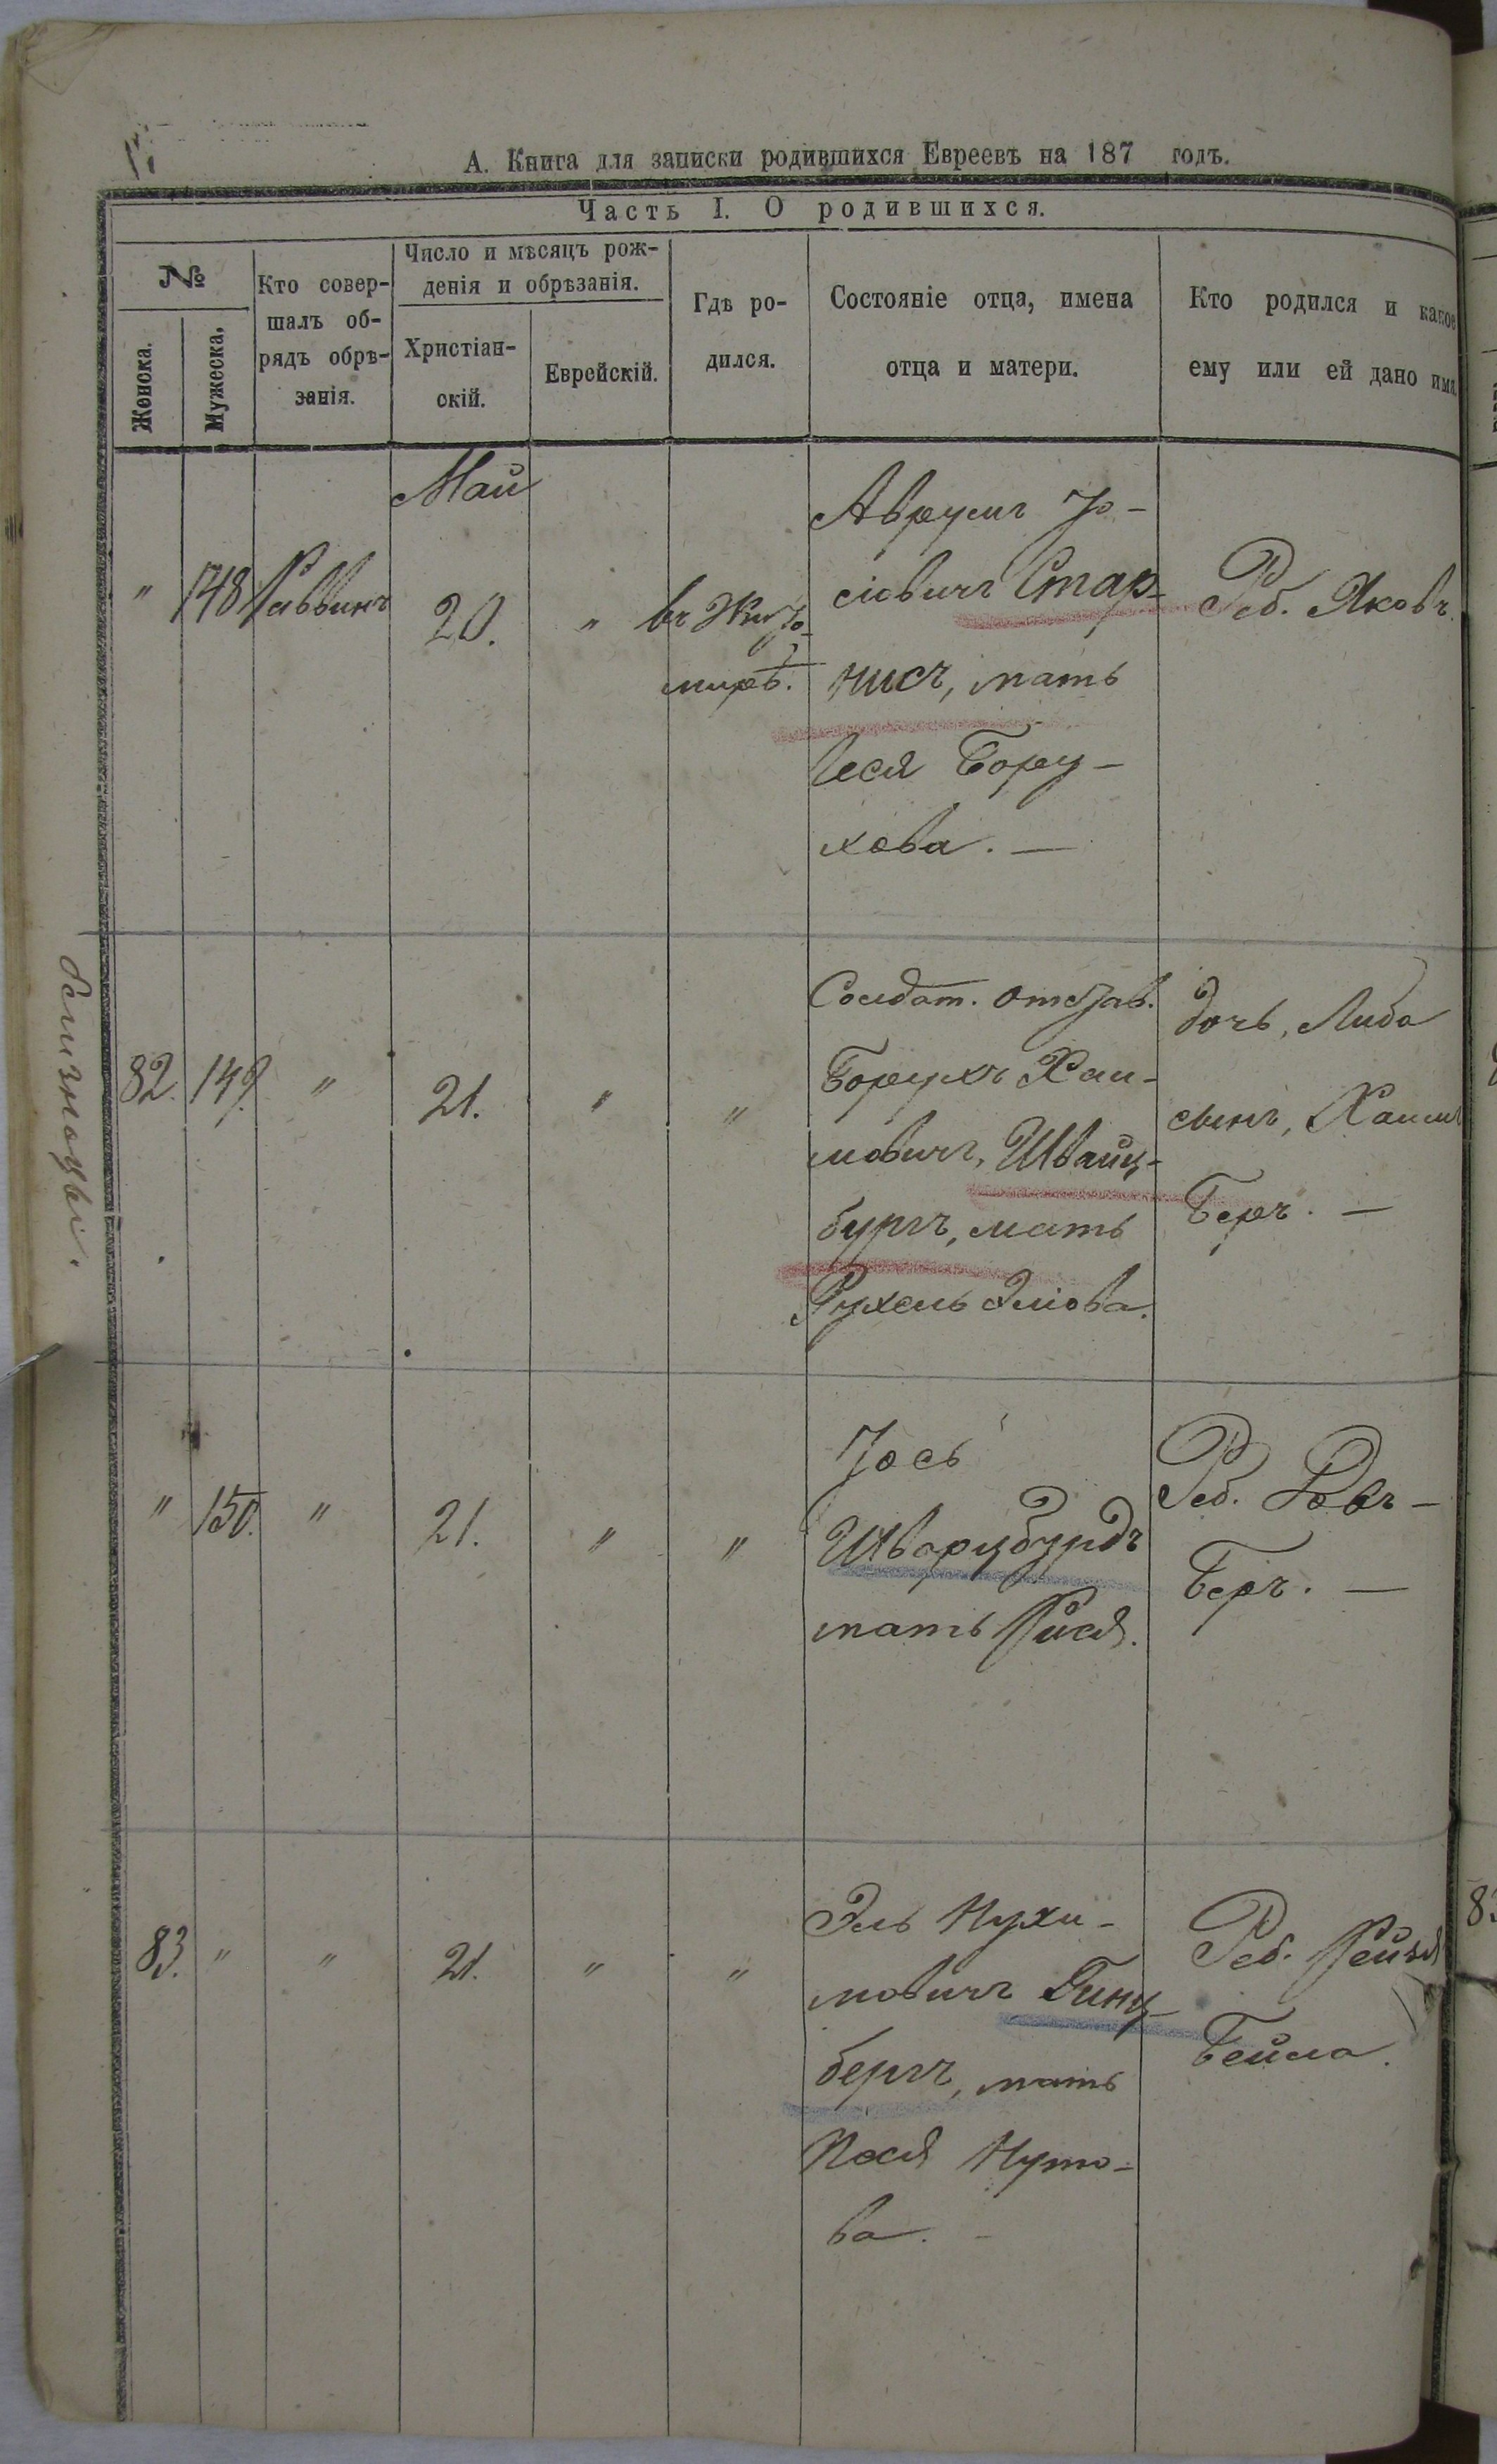 А. Книга для записки родившихся Евреевъ на 187 годъ.
Часть I. О родившихся.
№
Женска.
Мужеска,
Кто совер-
шалъ об-
рядъ обрѣ-
занія.
Число и мѣсяцъ рож-
денія и обрѣзанія.
Христіан-
скій.
Еврейскій.
Гдѣ ро-
дился.
Состояніе отца, имена
отца и матери.
Кто родился и какое
ему или ей дано имя.
Май
" 148 Раввинъ 20. "
въ Жито-
мирѣ.
Аврумъ Іо-
сіовичъ Стар-
нисъ, мать
Бору-
хова. —
Реб. Яковъ.
близнецы.
82. 149. " 21. " "
Солдат. отстав.
Борухъ Хаи-
мовичъ, Швайц-
бургъ, мать
Рухель Эліова.
дочь, Либа
сынъ, Хаимъ
Беръ. —
" 150. " 21. " "
Іось
Шварцбурдъ
мать Рися.
Реб. Довъ-
Беръ. —
83. " " 21. " "
Эль Нухи-
мовичъ Гинц-
бергъ, мать
Песя Нуто-
ва. -
Реб. Рейзя
Бейла.